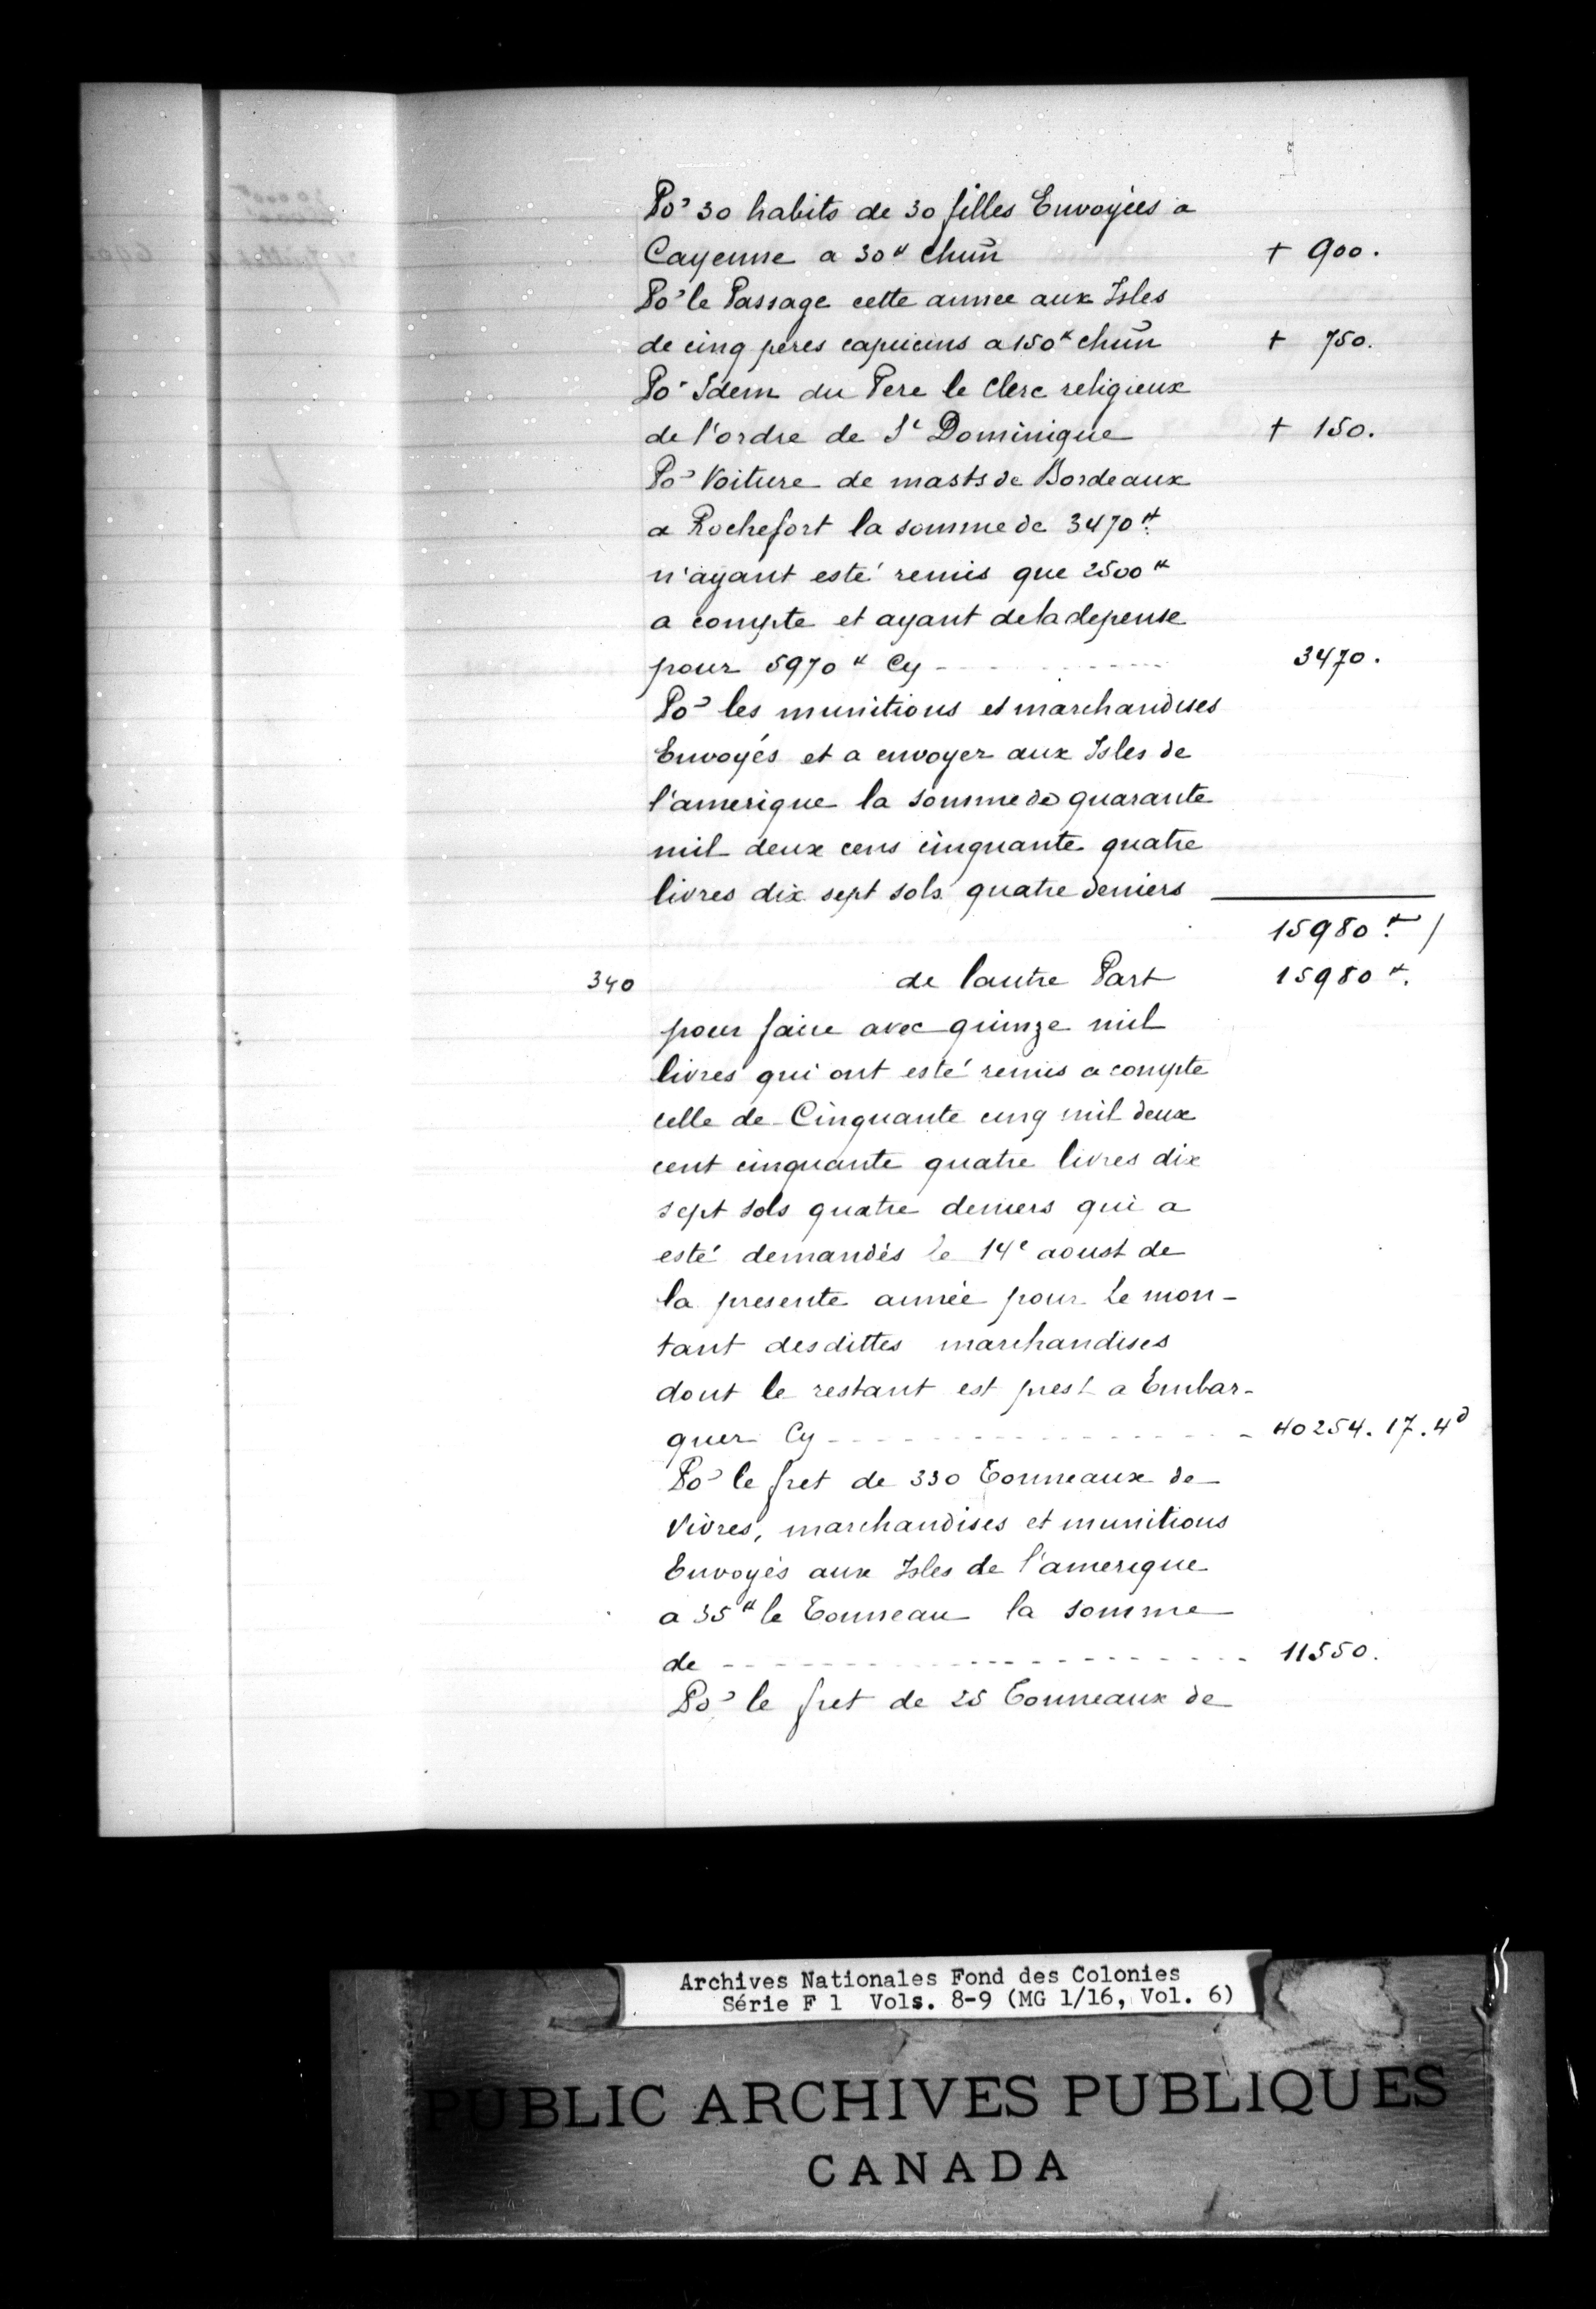 Po^r 30 habits de 30 filles Envoyées a
Cayenne a 30# chun̄ + 900.
Po^r le Passage cette année aux Isles
de cinq peres capucins a 150# chun̄ + 750.
Po^r Idem du Pere le Clerc religieux
de l'ordre de S^t Dominique + 150.
Po^r Voiture de masts de Bordeaux
a Rochefort la somme de 3470#.
n'ayant esté remis que 2500#
a compte et ayant de la depense
pour 5970# Cy - - - - - - 3470.
Po^r les munitions et marchandises
Envoyés et a envoyer aux Isles de
l'amerique la somme de quarante
mil deux cens cinquante quatre
livres dix sept sols quatre deniers
15980# /
340 de lautre Part 15980#.
pour faire avec quinze mil
livres qui ont esté remis a compte
celle de Cinquante cinq mil deux
cent cinquante quatre livres dix
sept sols quatre deniers qui a
esté demandés le 14^e aoust de
la presente année pour Le mon-
tant desdittes marchandises
dont le restant est prest a Embar-
quer Cy - - - - - - 40254. 17. 4^d
Po^r le fret de 330 Tonneaux de
Vivres, marchandises et munitions
Envoyés aux Isles de l'amerique
a 35# le Tonneau la somme
de - - - - - - 11550.
Po^r le fret de 25 Tonneaux de
Archives Nationales Fond des Colonies
Série F 1 Vols. 8-9 (MG 1/16, Vol. 6)
PUBLIC ARCHIVES PUBLIQUES
CANADA